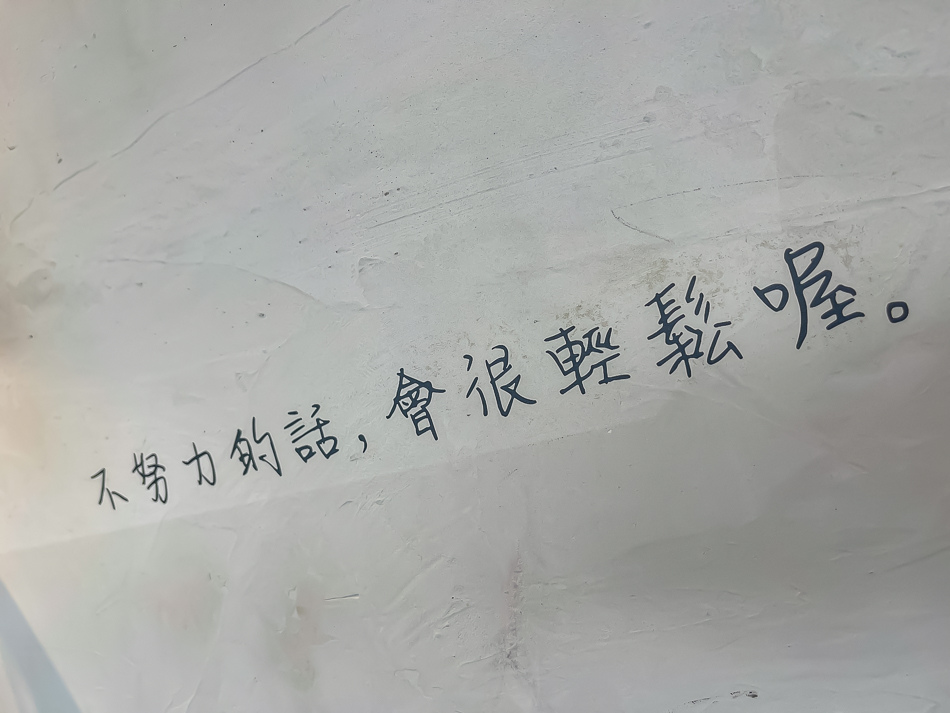 不努力的話，會很輕鬆喔。